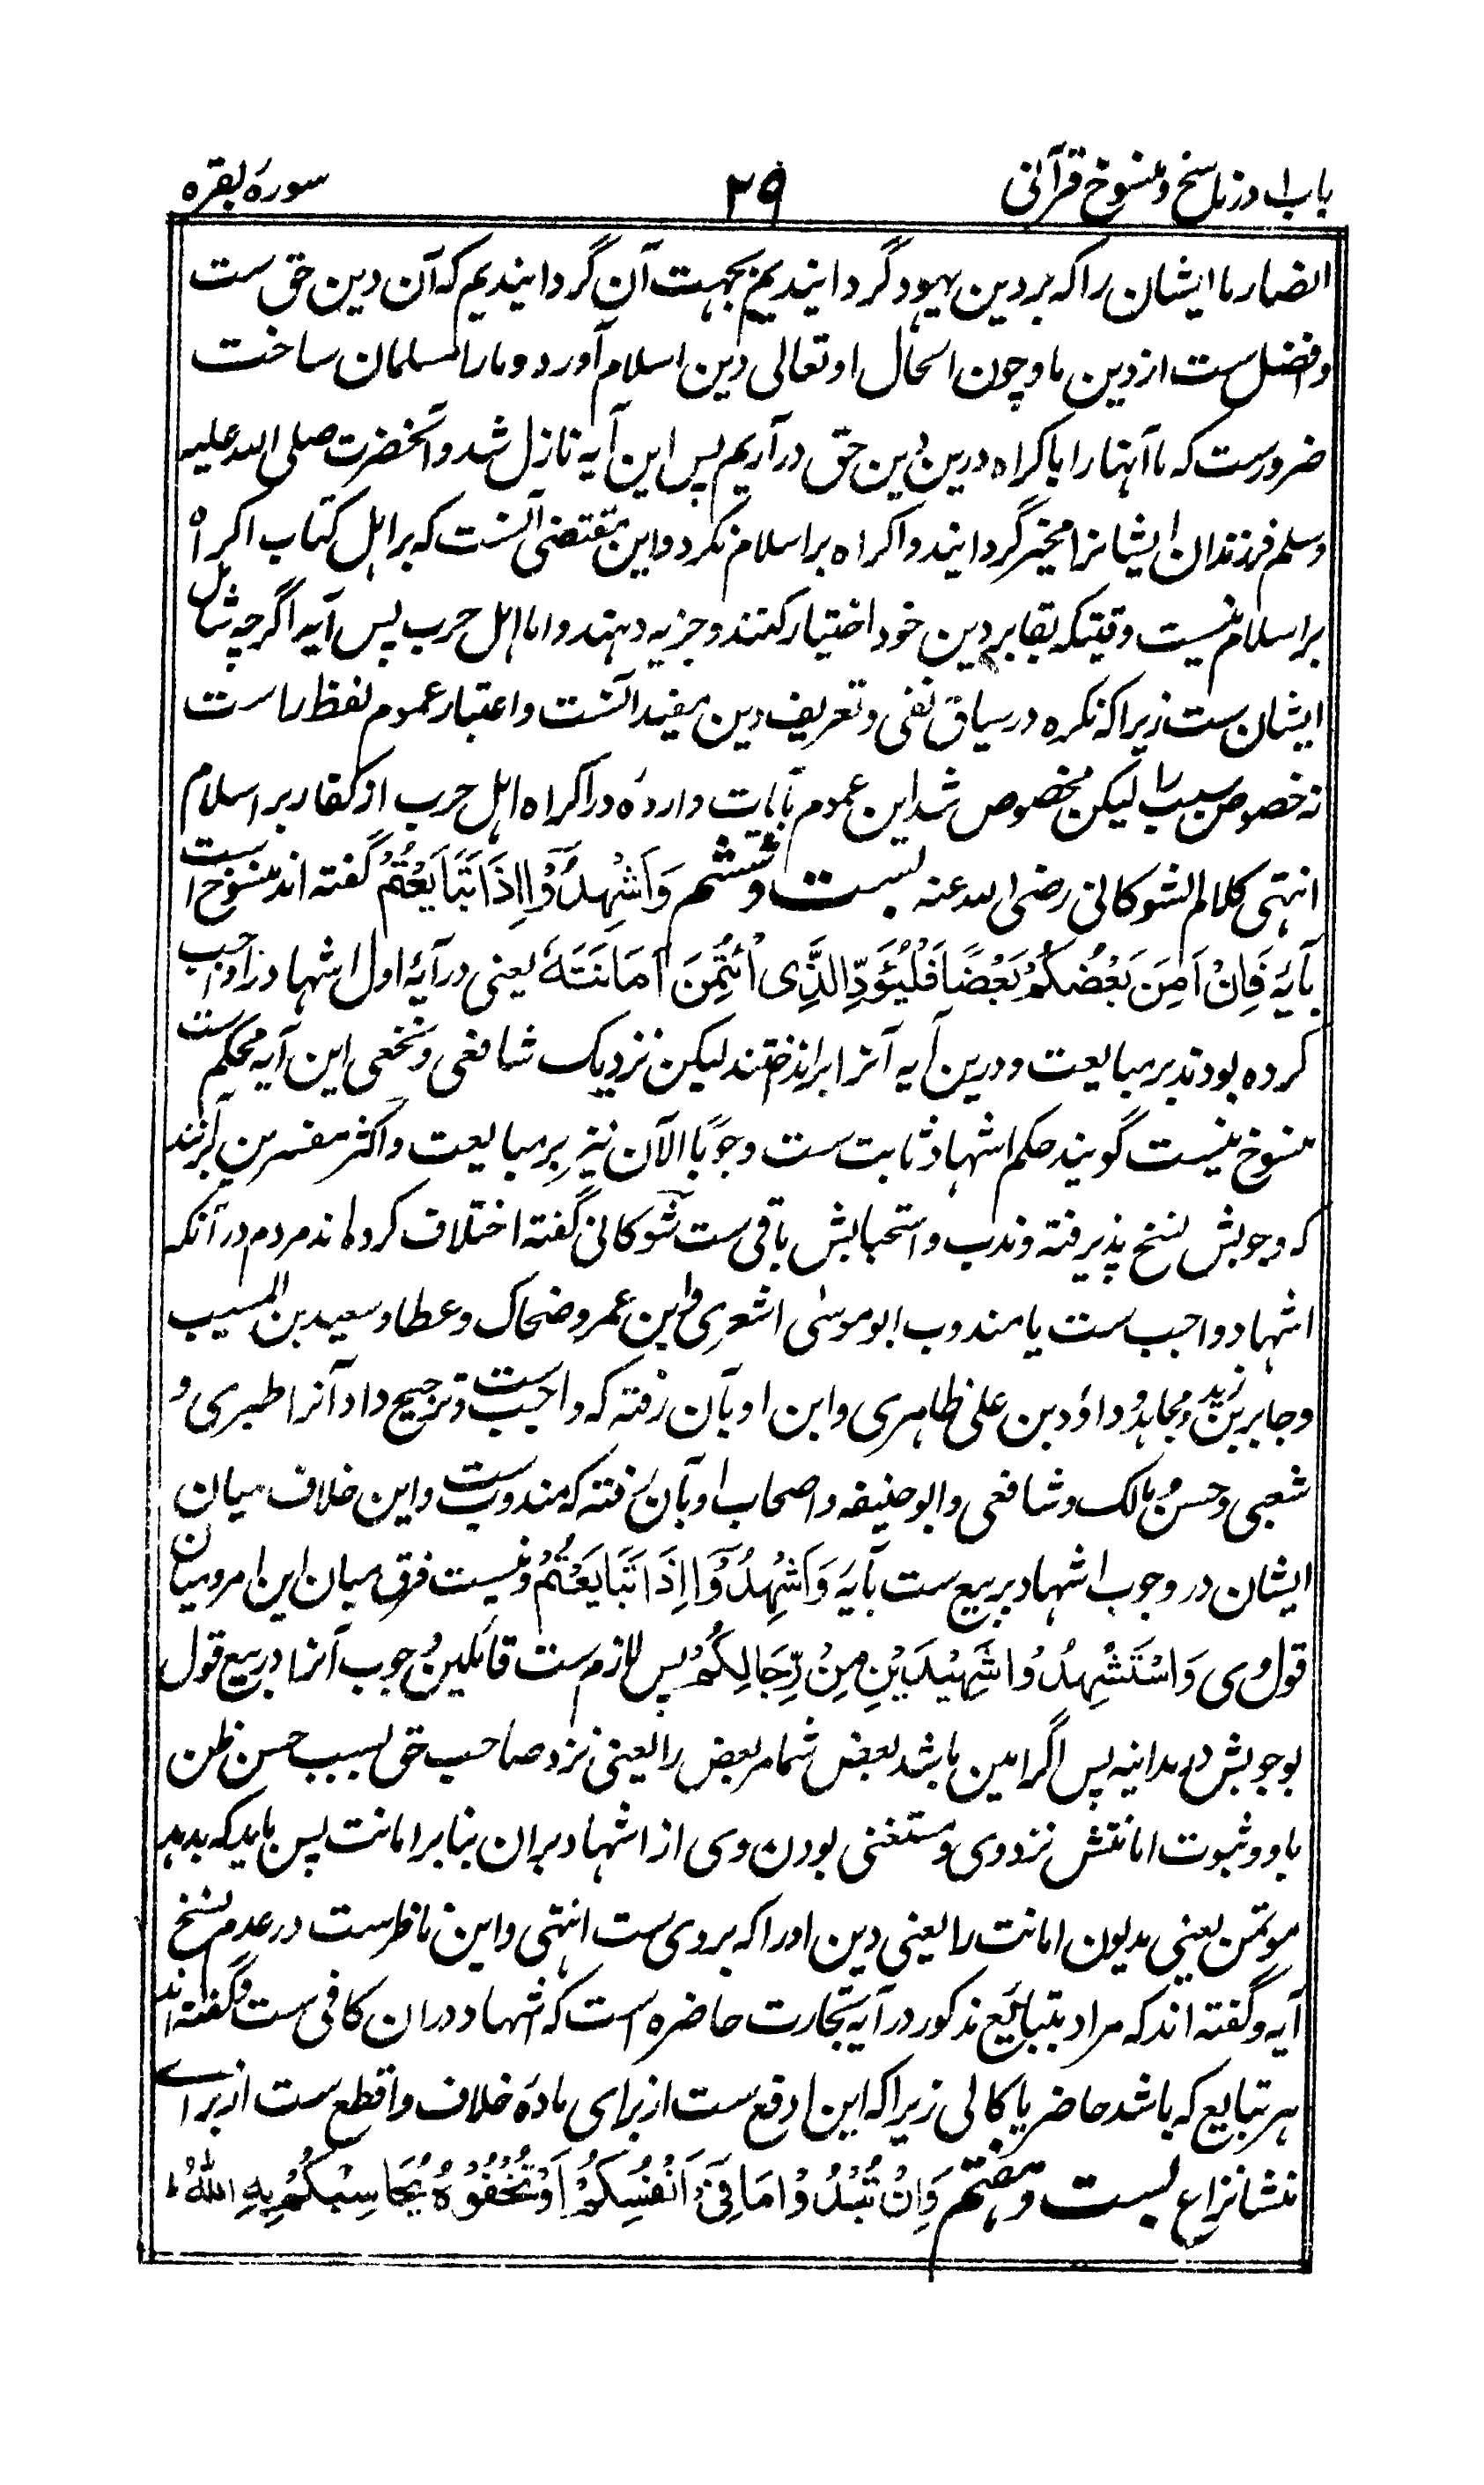 باب ا در ناسخ و منسوخ قرآنی ۲۹ سورۂ بقرہ
انصار ما ایشان را که بر دین یهود گردانیدیم بجهت آن گردانیدیم که آن دین حق ست
و افضل ست از دین ما و چون الحال او تعالی دین اسلام آورد و ما را مسلمان ساخت
ضرورست که ما آنها را با کراه درین دین حق در آریم پس این آیه نازل شد و آنحضرت صلی الله علیه
و سلم فرزندان ایشانرا مخیر گردانید و اکراه بر اسلام نکرد و این مقتضی آنست که بر اهل کتاب اکراه
بر اسلام نیست وقتیکه بقا بر دین خود اختیار کنند و جزیه دهند و اما اهل حرب پس آیه اگرچه شامل
ایشان ست زیرا که نکره در سیاق نفی و تعریف دین مفید آنست و اعتبار عموم لفظ راست
نه خصوص سبب را لیکن مخصوص شد این عموم بآیات وارده در اکراه اهل حرب از کفار بر اسلام
انتهی کلام الشوکانی رضی الله عنه بست و ششم وَاَشْهِدُوْٓا اِذَا تَبَایَعْتُمْ گفته اند منسوخ است
بآیه فَاِنْ اَمِنَ بَعْضُکُمْ بَعْضًا فَلْیُؤَدِّ الَّذِی اؤْتُمِنَ اَمَانَتَهٗ یعنی در آیۂ اول اشهاد را واجب
کرده بودند بر مبایعت و درین آیه آنرا برانداختند لیکن نزدیک شافعی و نخعی این آیه محکم ست
منسوخ نیست گویند حکم اشهاد ثابت ست وجوبًا الآن نیز بر مبایعت و اکثر مفسرین برانند
که وجوبش نسخ پذیرفته و ندب و استحبابش باقی ست شوکانی گفته اختلاف کرده اند مردم در آنکه
اشهاد واجب ست یا مندوب ابو موسی اشعری و ابن عمر و ضحاک و عطا و سعید بن المسیب
و جابر بن زید و مجاهد و داؤد بن علی ظاهری و ابن او بآن رفته که واجب ست و ترجیح داد آنرا طبری و
شعبی و حسن و مالک و شافعی و ابو حنیفه و اصحاب او بآن رفته که مندوب ست و این خلاف میان
ایشان در وجوب اشهاد بر بیع ست بآیه وَاَشْهِدُوْٓا اِذَا تَبَایَعْتُمْ و نیست فرق میان این امر و میان
قول وی وَاسْتَشْهِدُوْا شَهِیْدَیْنِ مِنْ رِّجَالِکُمْ پس لازم ست قائلین وجوب آنرا در بیع قول
بوجوبش در مداینه پس اگر امین باشد بعض شما مر بعض را یعنی نزد صاحب حق بسبب حسن ظن
باو و ثبوت امانتش نزد وی و مستغنی بودن وی از اشهاد بران بنابر امانت پس باید که بدهد
موتمن یعنی مدیون امانت را یعنی دین او را که بر وی ست انتهی و این ناظرست در عدم نسخ
آیه و گفته اند که مراد بتبایع مذکور در آیه تجارت حاضره است که اشهاد دران کافی ست و گفته اند
هر تبایع که باشد حاضر یا کالی زیرا که این ادفع ست از برای مادۂ خلاف و اقطع ست از برای
منشا نزاع بست و هفتم وَاِنْ تُبْدُوْا مَا فِیْٓ اَنْفُسِکُمْ اَوْ تُخْفُوْهُ یُحَاسِبْکُمْ بِهِ اللّٰهُ ط